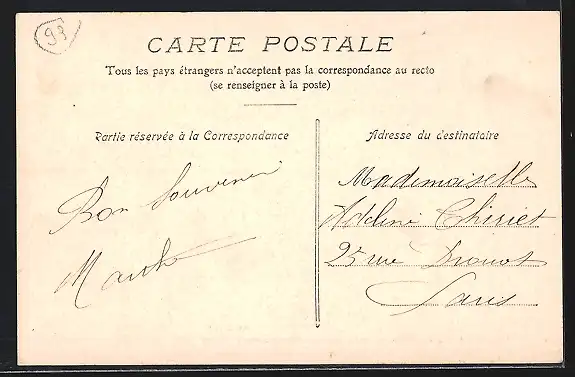 93
CARTE POSTALE
Tous les pays étrangers n'acceptent pas la correspondance au recto
(se renseigner à la poste)
Partie réservée à la Correspondance
Adresse du destinataire
Bon Souvenir
Mademoiselle
Adeline
25 rue Drouot
Paris